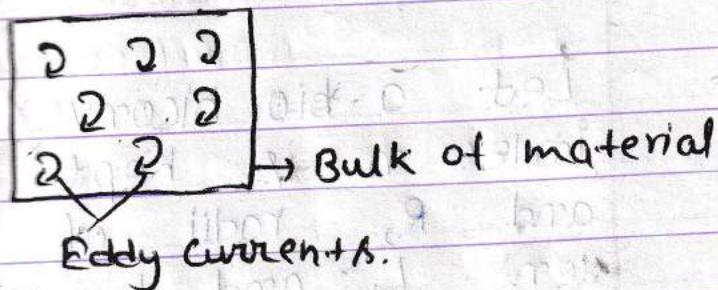 → Bulk of material
Eddy currents.